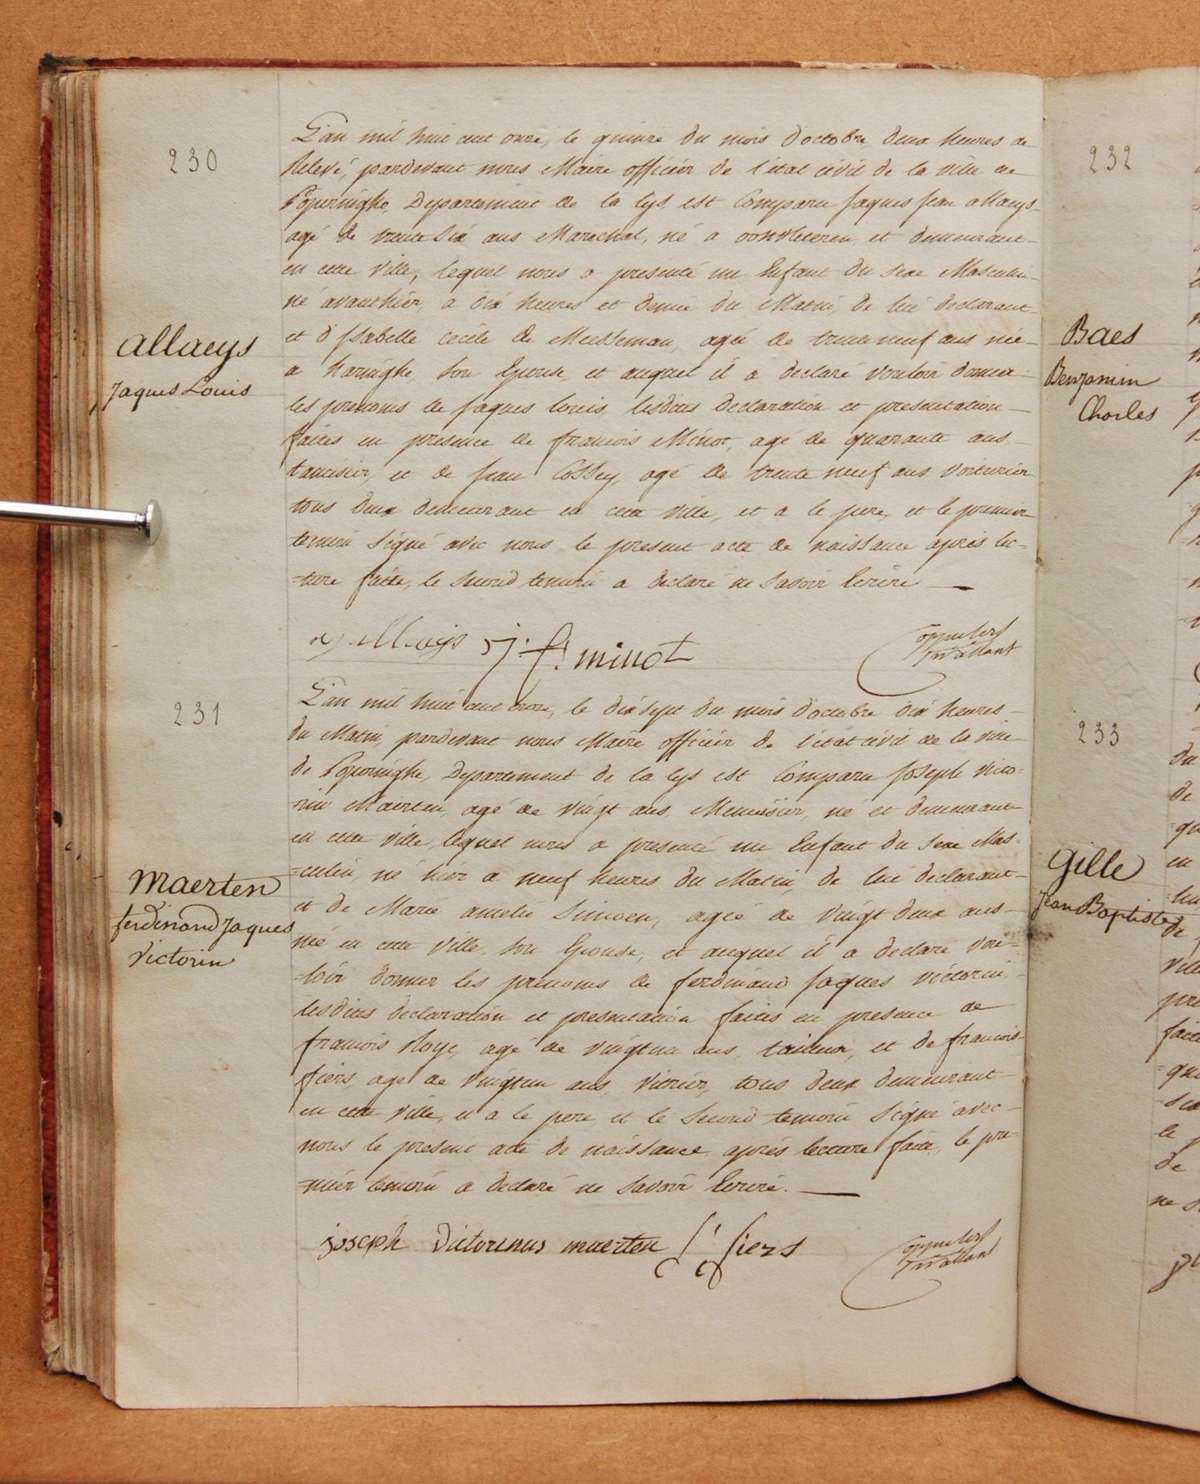 230
L'an mil huit cent onze, le quinze du mois d'octobre deux heures de
Relevé, pardevant nous Maire officier de l'état civil de la ville de
Poperinghe, Departement de la Lys est Comparu Jaques Jean allaeys
agé de trente Six ans Marechal, né a oostvleteren, et demeurant
en cette Ville, lequel nous a presenté un Enfant du Sexe Masculin
né avanthier, a dix heures et demie du Matin, de lui declarant
et d'Isabelle cecile de Meesseman, agée de trente neuf ans née
a haringhe, Son Epouse, et auquel il a declaré vouloir donner
les prenoms de Jaques Louis, lesdites declaration et presentation
faites en presence de francois Minot, agé de quarante ans
tamisier, et de Jean Cossey, agé de trente neuf ans Voiturier
tous deux demeurant en cette Ville, et a le pere, et le premier
temoin Signé avec nous le present acte de naissance après lec-
-ture faite, le Second temoin a declaré ne Savoir Ecrire
allaeys
Jaques Louis
allaeys J. f. minot
231
L'an mil huit cent onze, le dix sept du mois d'octobre dix heures
du Matin, pardevant nous Maire officier de l'état civil de la ville
de Poperinghe, Departement de la Lys est Comparu Joseph Victo-
rin Maerten, agé de vingt ans, Menuisier, né et demeurant
en cette Ville, lequel nous a presenté un Enfant du Sexe Mas-
-culin né hier a neuf heures du Matin, de lui declarant
et de Marie amelie Simoen, agée de vingt deux ans
née en cette Ville, Son Epouse, et auquel il a declaré vou-
-loir donner les prenoms de ferdinand Jaques victorin
lesdites declaration et presentation faites en presence de
francois Roye, agé de vingtun ans, tailleur, et de francois
fiers, agé de vingtun ans, Vitrier, tous deux demeurant
en cette Ville, et a le pere, et le Second temoin Signé avec
nous le present acte de naissance, après lecture faite, le pre-
-mier temoin a declaré ne Savoir Ecrire.
Maerten
ferdinand Jaques
Victorin
joseph Victorinus maerten f fiers
232
Baes
Benjamin
Charles
233
Gille
Jean Baptiste